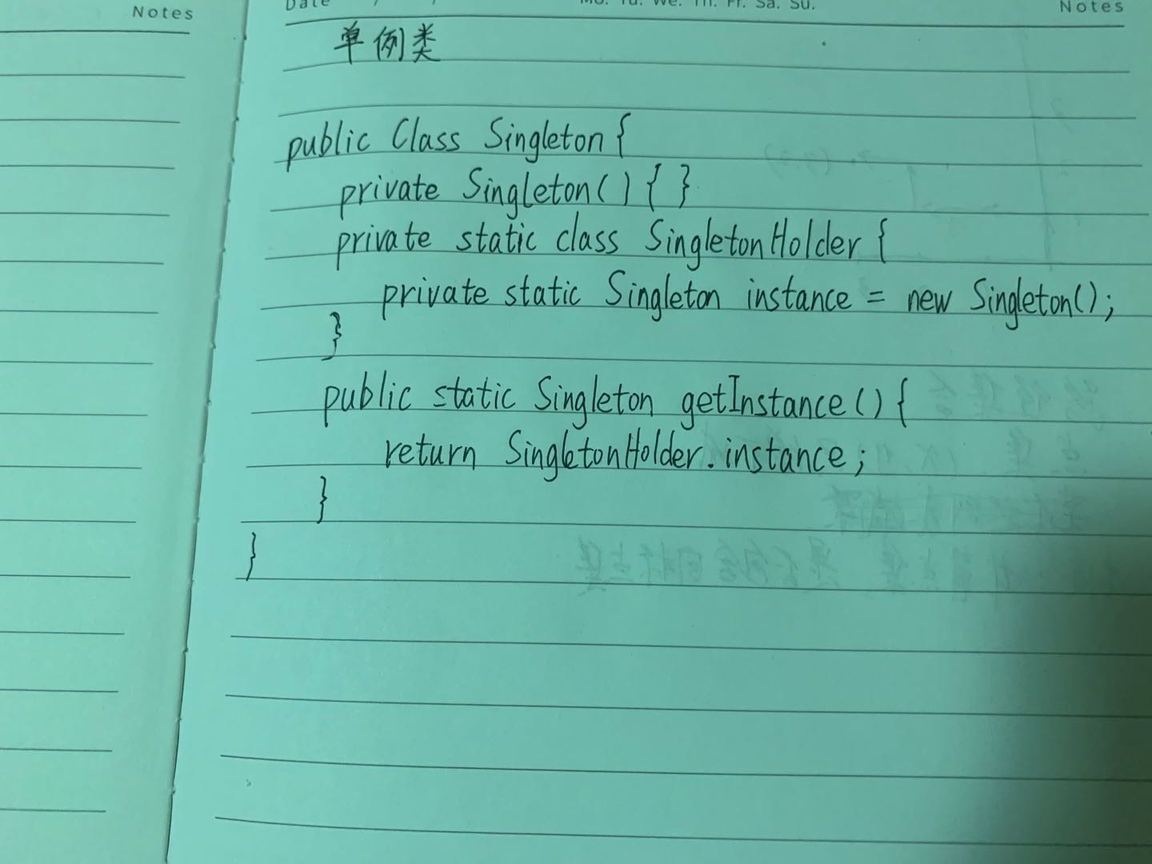 Notes
Date
Mo. Tu. We. Th. Fr. Sa. Su.
Notes
单例类
public Class Singleton {
private Singleton() { }
private static class SingletonHolder {
private static Singleton instance = new Singleton();
}
public static Singleton getInstance() {
return SingletonHolder.instance;
}
}